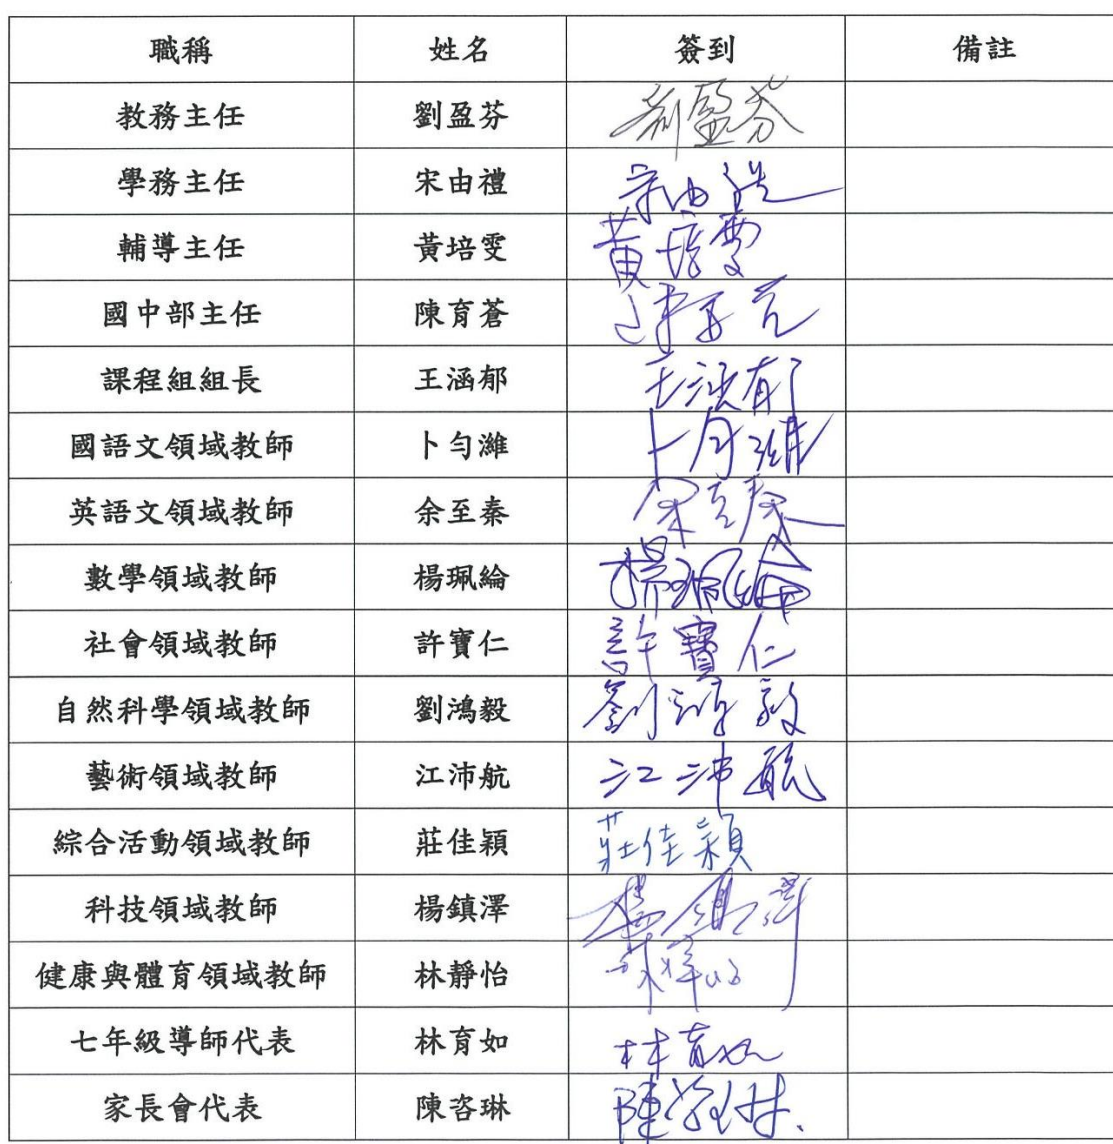 職稱 姓名 簽到 備註
教務主任 劉盈芬 劉盈芬
學務主任 宋由禮 宋由禮
輔導主任 黃培雯 黃培雯
國中部主任 陳育蒼 陳育蒼
課程組組長 王涵郁 王涵郁
國語文領域教師 卜勻濰 卜勻濰
英語文領域教師 余至秦 余至秦
數學領域教師 楊珮綸 楊珮綸
社會領域教師 許寶仁 許寶仁
自然科學領域教師 劉鴻毅 劉鴻毅
藝術領域教師 江沛航 江沛航
綜合活動領域教師 莊佳穎 莊佳穎
科技領域教師 楊鎮澤 楊鎮澤
健康與體育領域教師 林靜怡 林靜怡
七年級導師代表 林育如 林育如
家長會代表 陳咨琳 陳咨琳